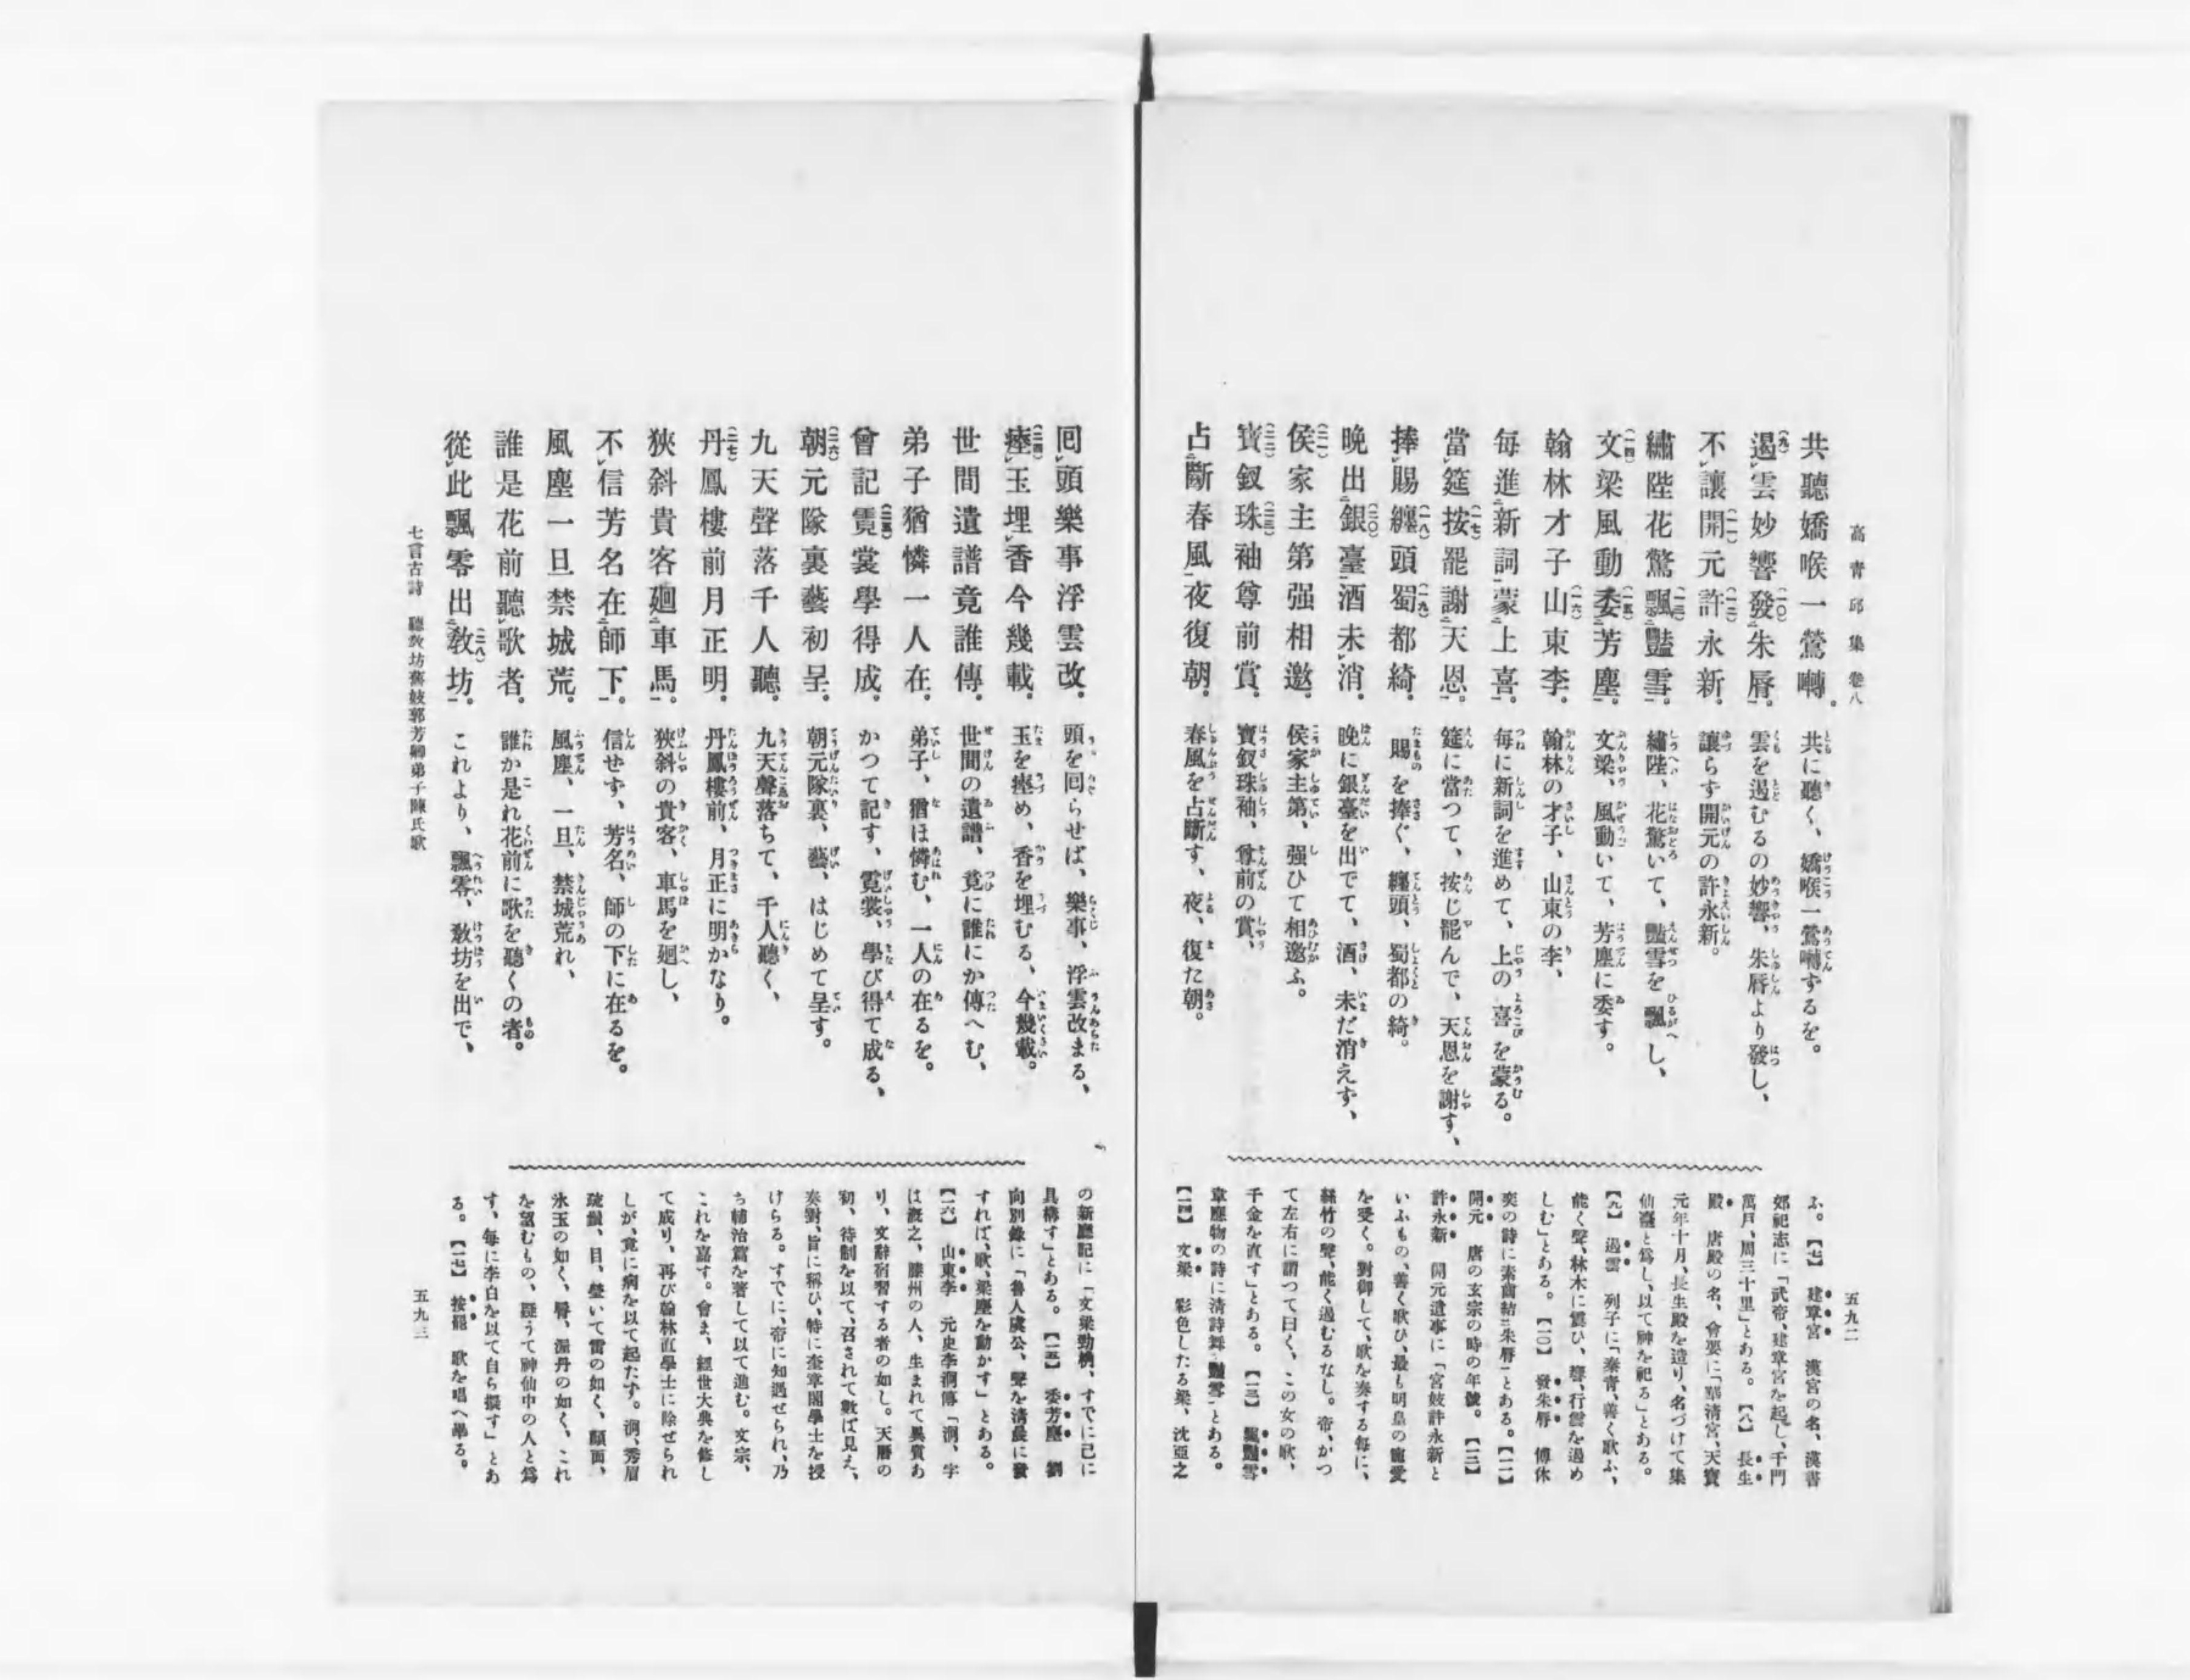 高青邱集 卷八
五九二
共聽嬌喉一鶯囀。
遏雲妙響發朱脣。
不讓開元許永新。
繡陛花驚飄豔雪。
文梁風動委芳塵。
翰林才子山東李。
每進新詞蒙上喜。
當筵按罷謝天恩。
捧賜纏頭蜀都綺。
晩出銀臺酒未消。
侯家主第强相邀。
寶釵珠袖尊前賞。
占斷春風夜復朝。
共に聽く、嬌喉一鶯囀するを。
雲を遏むるの妙響、朱脣より發し、
讓らず開元の許永新。
繡陛、花驚いて、豔雪を飄し、
文梁、風動いて、芳塵に委す。
翰林の才子、山東の李、
每に新詞を進めて、上の喜を蒙る。
筵に當つて、按じ罷んで、天恩を謝す、
賜を捧ぐ、纏頭、蜀都の綺。
晩に銀臺を出でて、酒、未だ消えず、
侯家主第、强ひて相邀ふ。
寶釵珠袖、尊前の賞、
春風を占斷す、夜、復た朝。
ふ。【七】 建章宮 漢宮の名、漢書
郊祀志に「武帝、建章宮を起し、千門
萬戶、周三十里」とある。【八】 長生
殿 唐殿の名、會要に「華淸宮、天寶
元年十月、長生殿を造り、名づけて集
仙臺と爲し、以て神を祀る」とある。
【九】 遏雲 列子に「秦靑、善く歌ふ、
能く聲、林木に震ひ、響、行雲を遏め
しむ」とある。【一〇】 發朱脣 傅休
奕の詩に素齒結朱脣」とある。【一一】
開元 唐の玄宗の時の年號。【一二】
許永新 開元遺事に「宮妓許永新と
いふもの、善く歌ひ、最も明皇の寵愛
を受く。對御して、歌を奏する每に、
絲竹の聲、能く遏むるなし。帝、かつ
て左右に謂つて曰く、この女の歌、
千金を直す」とある。【一三】 飄豔雪
韋應物の詩に淸詩舞豔雪」とある。
【一四】 文梁 彩色したる梁、沈亞之
囘頭樂事浮雲改。
瘞玉埋香今幾載。
世間遺譜竟誰傳。
弟子猶憐一人在。
曾記霓裳學得成。
朝元隊裏藝初呈。
九天聲落千人聽。
丹鳳樓前月正明。
狹斜貴客廻車馬。
不信芳名在師下。
風塵一旦禁城荒。
誰是花前聽歌者。
從此飄零出敎坊。
頭を囘らせば、樂事、浮雲改まる、
玉を瘞め、香を埋むる、今幾載。
世間の遺譜、竟に誰にか傳へむ、
弟子、猶ほ憐む、一人の在るを。
かつて記す、霓裳、學び得て成る、
朝元隊裏、藝、はじめて呈す。
九天聲落ちて、千人聽く、
丹鳳樓前、月正に明かなり。
狹斜の貴客、車馬を廻し、
信せず、芳名、師の下に在るを。
風塵、一旦、禁城荒れ、
誰か是れ花前に歌を聽くの者。
これより、飄零、敎坊を出で、
の新廳記に「文梁勁桷、すでに已に
具構す」とある。【一五】 委芳塵 劉
向別錄に「魯人虞公、聲を淸晨に發
すれば、歌、梁塵を動かす」とある。
【一六】 山東李 元史李泂傳「泂、字
は漑之、滕州の人、生まれて異質あ
り、文辭宿習する者の如し。天曆の
初、待制を以て、召されて數ば見え、
奏對、旨に稱ひ、特に奎章閣學士を授
けらる。すでに、帝に知遇せられ、乃
ち輔治篇を著して以て進む。文宗、
これを嘉す。會ま、經世大典を修し
て成り、再び翰林直學士に除せられ
しが、竟に病を以て起たず。泂、秀眉
疏髯、目、瑩いて雷の如く、顏面、
氷玉の如く、脣、渥丹の如く、これ
を望むもの、疑うて神仙中の人と爲
す、每に李白を以て自ら擬す」とあ
る。【一七】 按罷 歌を唱へ畢る。
七言古詩 聽敎坊舊妓郭芳卿弟子陳氏歌
五九三